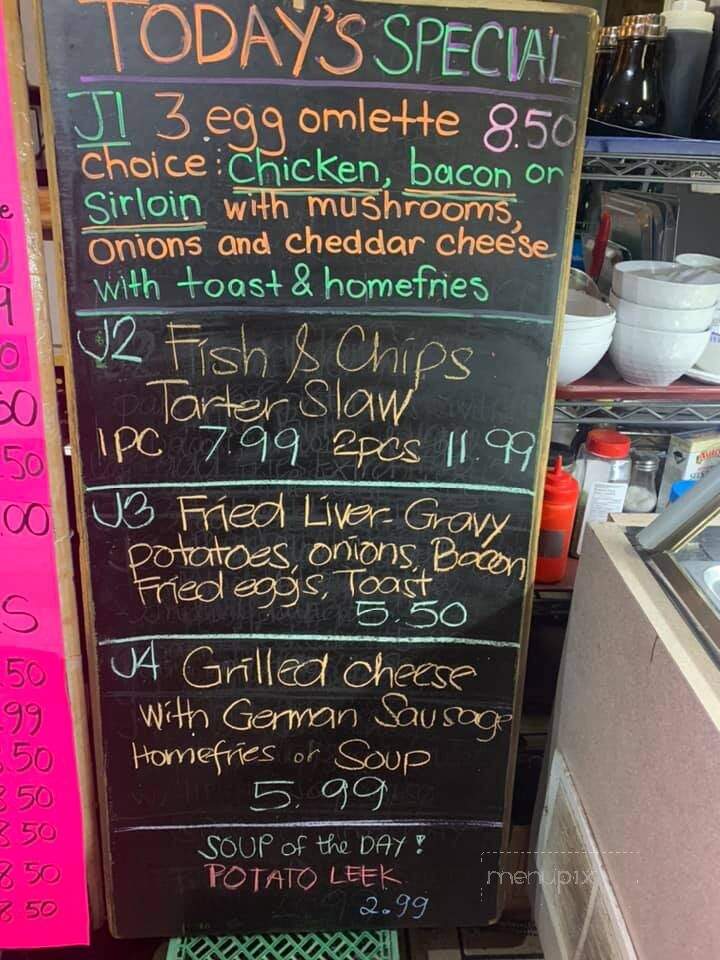 TODAY'S SPECIAL
J1 3 egg omlette 8.50
choice: Chicken, bacon or
Sirloin with mushrooms,
onions and cheddar cheese
with toast & homefries
J2 Fish & Chips
Tarter Slaw
1PC 7.99 2pcs 11.99
J3 Fried Liver-Gravy
potatoes, onions, Bacon,
Fried eggs, Toast
5.50
J4 Grilled cheese
with German Sausage
Homefries or Soup
5.99
SOUP of the DAY!
POTATO LEEK
2.99
menupix
50
00
S
50
99
50
50
50
8 50
8 50